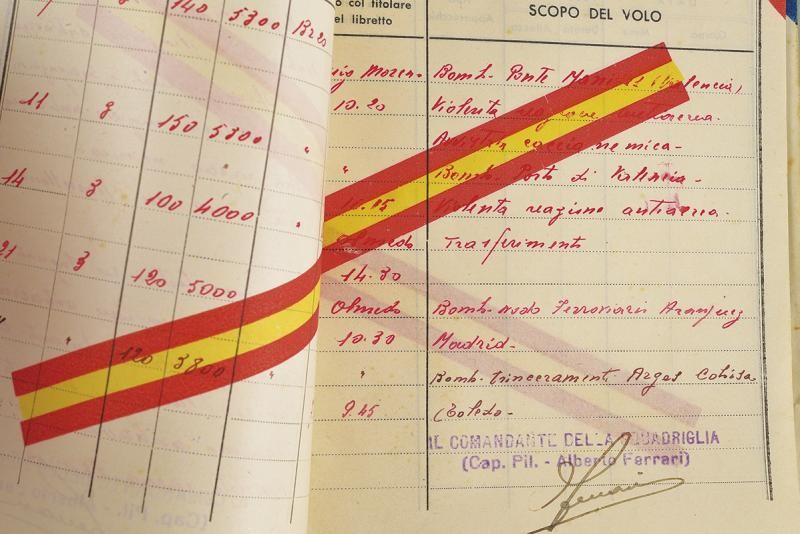 140 5300
o col titolare
el libretto
SCOPO DEL VOLO
Bomb. Ponte (Valencia)
11 3 150 5300 "
10.20 Violenta reazione antiaerea.
Avvistata caccia nemica -
" Bomb. Porto di Valencia -
14 3 100 4000 "
Violenta reazione antiaerea.
Olmedo Trasferimento
21 3 120 5000
14.30
Olmedo Bomb. nodo Ferroviario Aranjuez
10.30 Madrid -
" " 120 3800 "
" Bomb. trinceramenti Arges Cobisa
9.45 (Toledo -
IL COMANDANTE DELLA SQUADRIGLIA
(Cap. Pil. - Alberto Ferrari)
Ferrari